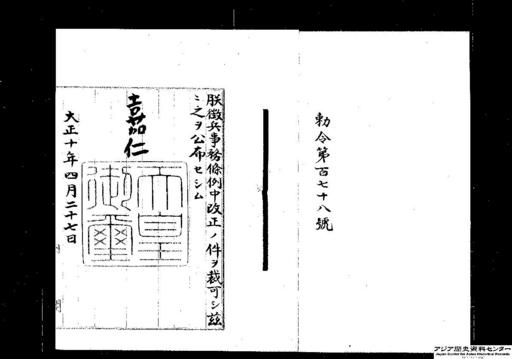 勅令第百七十八號
朕徴兵事務條例中改正ノ件ヲ裁可シ茲
ニ之ヲ公布セシム
嘉仁
天皇
御璽
大正十年四月二十七日
アジア歴史資料センター
Japan Center for Asian Historical Records